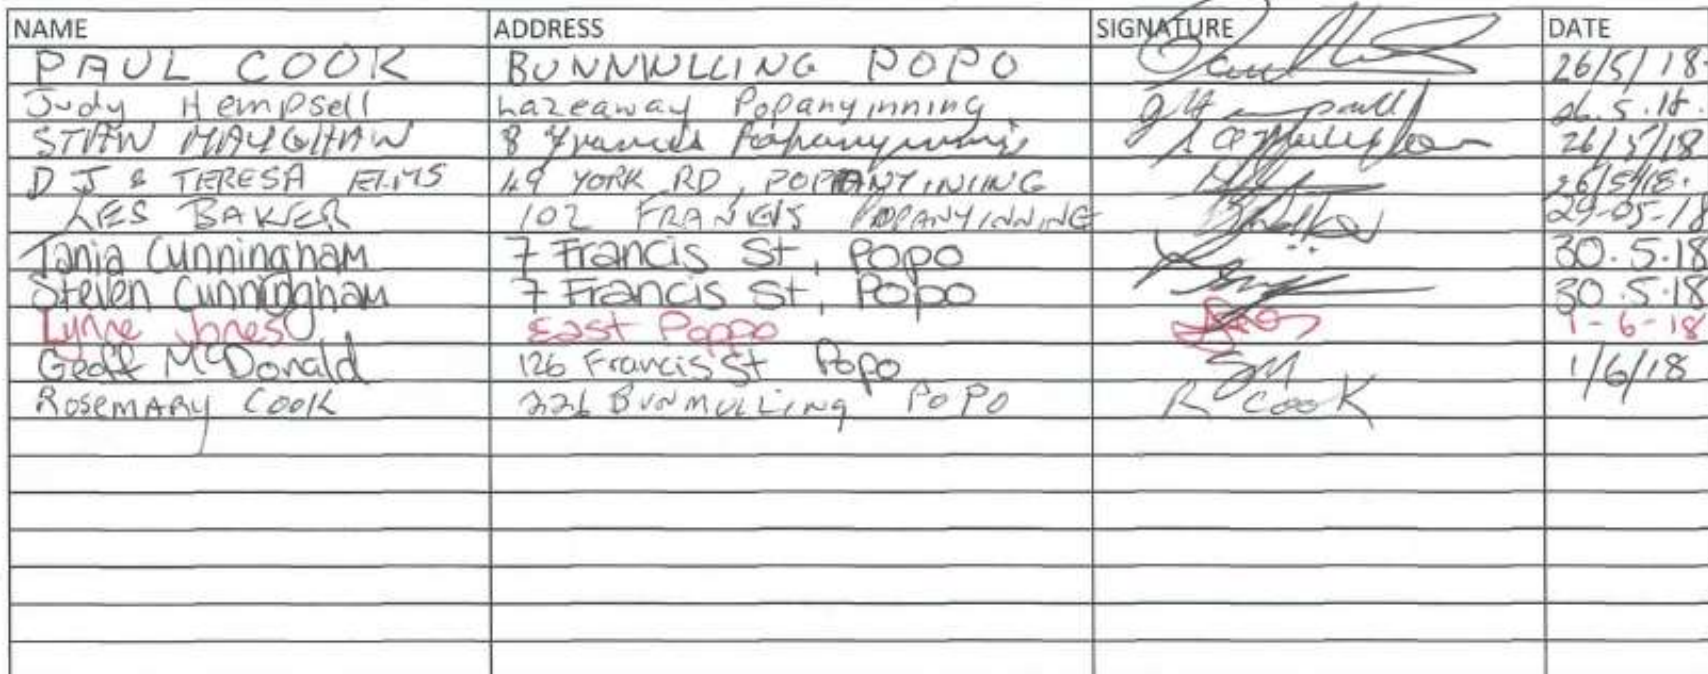 NAME ADDRESS SIGNATURE DATE
PAUL COOK BUNNMULLING POPO 26/5/18
Judy Hempsell Lazeaway Popanyinning 26.5.18.
STAN MAUGHAN 8 Francis Popanyinning 26/5/18
D J & TERESA ELMS 49 YORK RD, POPANYINNING 26/5/18.
LES BAKER 102 FRANCIS POPANYINNING 29-05-18
Tania Cunningham 7 Francis St, Popo 30.5.18
Steven Cunningham 7 Francis St, Popo 30.5.18
Lynne Jones East Poppo 1-6-18
Geoff McDonald 126 Francis St Popo GM 1/6/18
Rosemary Cook 226 BUNMULLING POPO R COOK